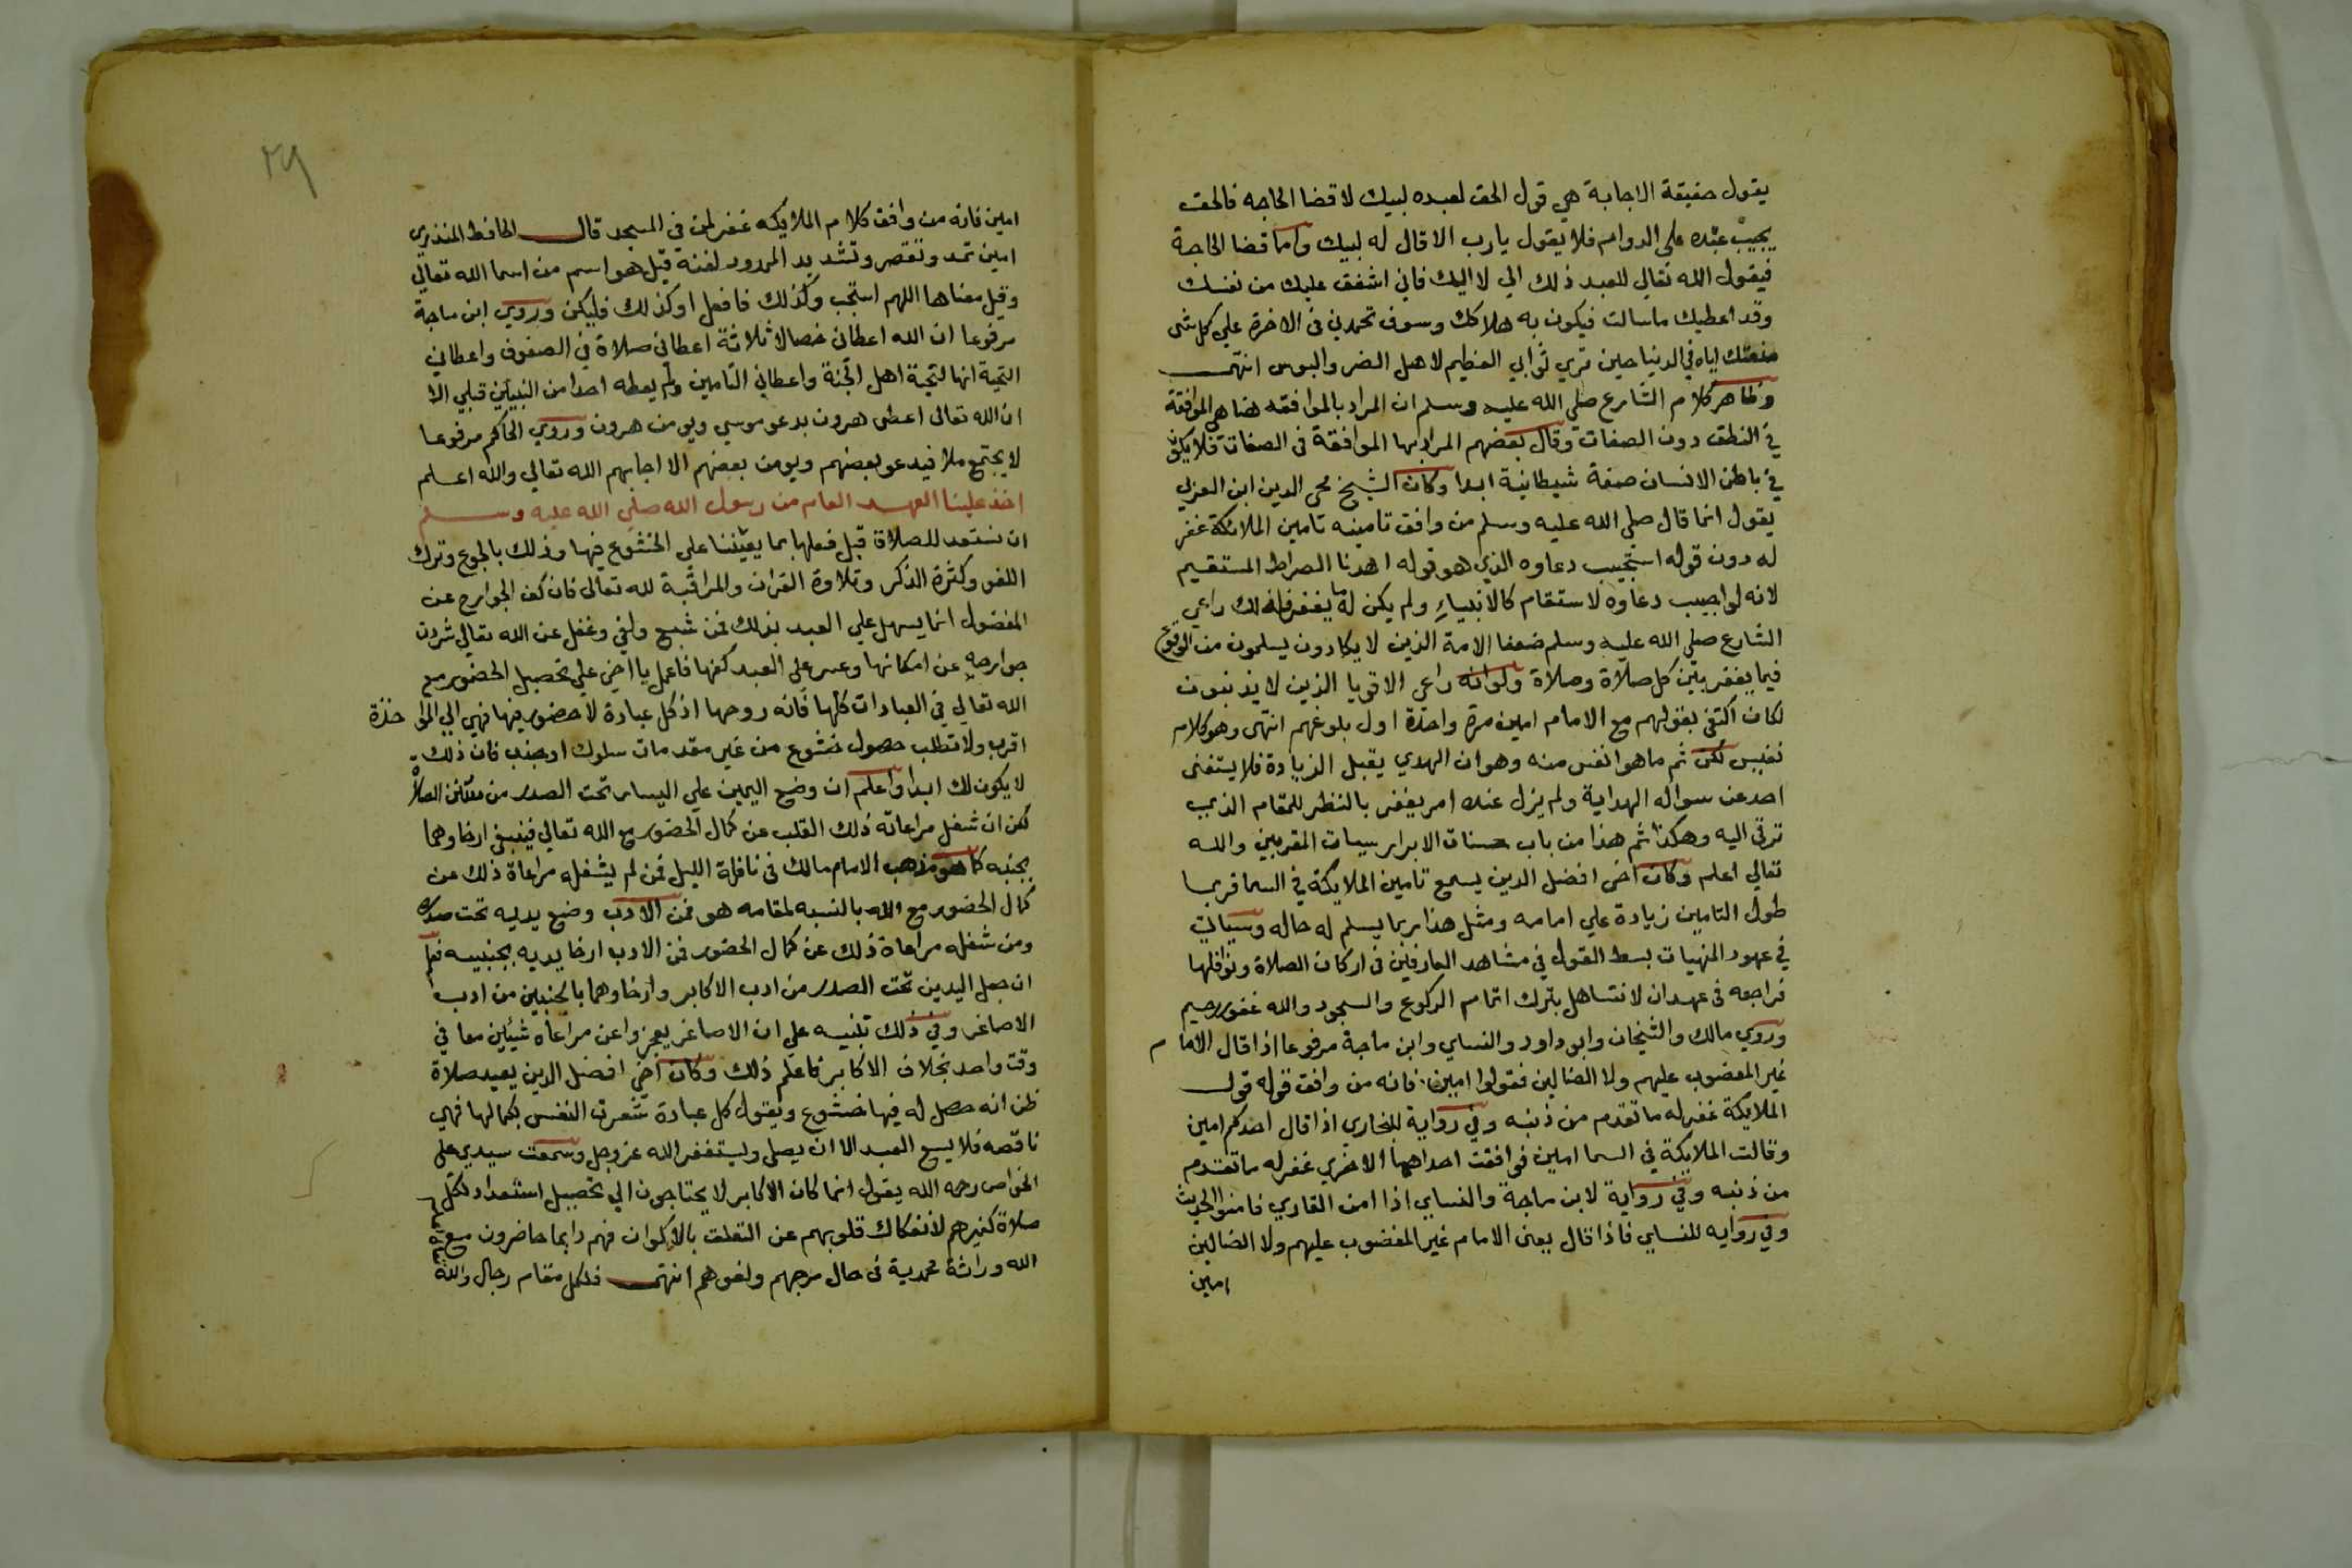 يقول حقيقة الاجابة هي قول الحق لعبده لبيك لا قضا الحاجه فالحق
يجيب عبده على الدوام فلا يقول يارب الا قال له لبيك واما قضا الحاجة
فيقول الله تعالي للعبد ذلك الي لا اليك فاني اشفق عليك من نفسك
وقد اعطيك ما سالت فيكون به هلاكك وسوف تحمدني في الاخرة علي كل شي
منعتك اياه في الدنيا حين تري ثوابي العظيم لاهل الضر والبوس انتهى
وظاهر كلام الشارع صلي الله عليه وسلم ان المراد بالموافقه هنا هي الموافقة
في النطق دون الصفات وقال بعضهم المراد بها الموافقة في الصفات فلا يكون
في باطن الانسان صفة شيطانية ابدا وكان الشيخ محي الدين ابن العربي
يقول انما قال صلي الله عليه وسلم من وافق تامينه تامين الملائكة غفر
له دون قوله استجيب دعاوه الذي هو قوله اهدنا الصراط المستقيم
لانه لو اجيب دعاوه لاستقام كالانبياء ولم يكن له ما يغفر فلذلك راعي
الشارع صلي الله عليه وسلم ضعفا الامة الذين لا يكادون يسلمون من الوقوع
فيما يغفر بين كل صلاة وصلاة ولو انه راعي الاقويا الذين لا يذنبون
لكان اكتفي بقولهم مع الامام امين مرة واحدة اول بلوغهم انتهى وهو كلام
نفيس لكن ثم ما هو انفس منه وهو ان الهدي يقبل الزيادة فلا يستغنى
احد عن سواله الهداية ولم يزل عنده امر يغفر بالنظر للمقام الذي
ترقى اليه وهكذا ثم هذا من باب حسنات الابرار سيات المقربين والله
تعالي اعلم وكان اخي افضل الدين يسمع تامين الملايكة في السما فربما
طول التامين زيادة علي امامه ومثل هذا ربما يسلم له حاله وسياتي
في عهود المنهيات بسط القول في مشاهد العارفين في اركان الصلاة ونوافلها
فراجعه في عهد ان لا نتساهل بترك اتمام الركوع والسجود والله غفور رحيم
وروي مالك والشيخان وابو داود والنساي وابن ماجة مرفوعا اذا قال الامام
غير المغضوب عليهم ولا الضالين فقولوا امين فانه من وافق قوله قول
الملايكة غفر له ما تقدم من ذنبه وفي رواية للبخاري اذا قال احدكم امين
وقالت الملايكة في السما امين فوافقت احداهما الاخري غفر له ما تقدم
من ذنبه وفي رواية لابن ماجة والنساي اذا امن القاري فامنوا الحديث
وفي روايه للنساي فاذا قال يعنى الامام غير المغضوب عليهم ولا الضالين
امين
٢٩
امين فانه من وافق كلام الملايكه غفر لمن في المسجد قال الحافظ المنذري
امين تمد وتقصر وتشديد الممدود لغة قيل هو اسم من اسما الله تعالي
وقيل معناها اللهم استجب وكذلك فافعل او كذلك فليكن وروي ابن ماجة
مرفوعا ان الله اعطاني خصالا ثلاثة اعطاني صلاة في الصفوف واعطاني
التحية انها لتحية اهل الجنة واعطاني التامين ولم يعطه احدا من النبيين قبلي الا
ان الله تعالى اعطى هرون يدعو موسي ويومن هرون وروي الحاكم مرفوعا
لا يجتمع ملا فيدعو بعضهم ويومن بعضهم الا اجابهم الله تعالي والله اعلم
اخذ علينا العهد العام من رسول الله صلي الله عليه وسلم
ان نستعد للصلاة قبل فعلها بما يعيننا علي الخشوع فيها وذلك بالجوع وترك
اللغو وكثرة الذكر وتلاوة القران والمراقبة لله تعالى فان كف الجوارح عن
الفضول انما يسهل علي العبد بذلك فمن شبع ولغي وغفل عن الله تعالي شردت
جوارحه عن امكانها وعسر علي العبد كفها فاعمل يا اخي علي تحصيل الحضور مع
الله تعالي في العبادات كلها فانه روحها اذ كل عبادة لا حضور فيها فهي الي المواخذة
اقرب ولا تطلب حصول خشوع من غير مقدمات سلوك او جذب فان ذلك
لا يكون لك ابدا واعلم ان وضع اليمين علي اليسار تحت الصدر من سنن الصلاة
لكن ان شغل مراعاته ذلك القلب عن كمال الحضور مع الله تعالي فينبغي ارخاوهما
بجنبه كما هو مذهب الامام مالك في نافلة الليل فمن لم يشغله مراعاة ذلك عن
كمال الحضور مع الله بالنسبه لمقامه هو فمن الادب وضع يديه تحت صدره
ومن شغله مراعاة ذلك عن كمال الحضور فمن الادب ارخا يديه بجنبيه فعلم
ان جعل اليدين تحت الصدر من ادب الاكابر وارخاوهما بالجنبين من ادب
الاصاغر وفي ذلك تنبيه علي ان الاصاغر يعجزوا عن مراعاه شيئين معا في
وقت واحد بخلاف الاكابر فاعلم ذلك وكان اخي افضل الدين يعيد صلاة
ظن انه حصل له فيها خشوع ويقول كل عبادة شعرت النفس بكمالها فهي
ناقصه فلا يسع العبد الا ان يصلي ويستغفر الله عز وجل وسمعت سيدي علي
الخواص رحمه الله يقول انما كان الاكابر لا يحتاجون الي تحصيل استعداد لكل
صلاة كغيرهم لانفكاك قلوبهم عن التعلق بالاكوان فهم دايما حاضرون مع
الله وراثة محمدية في حال مزحهم ولغوهم انتهى فلكل مقام رجال والله